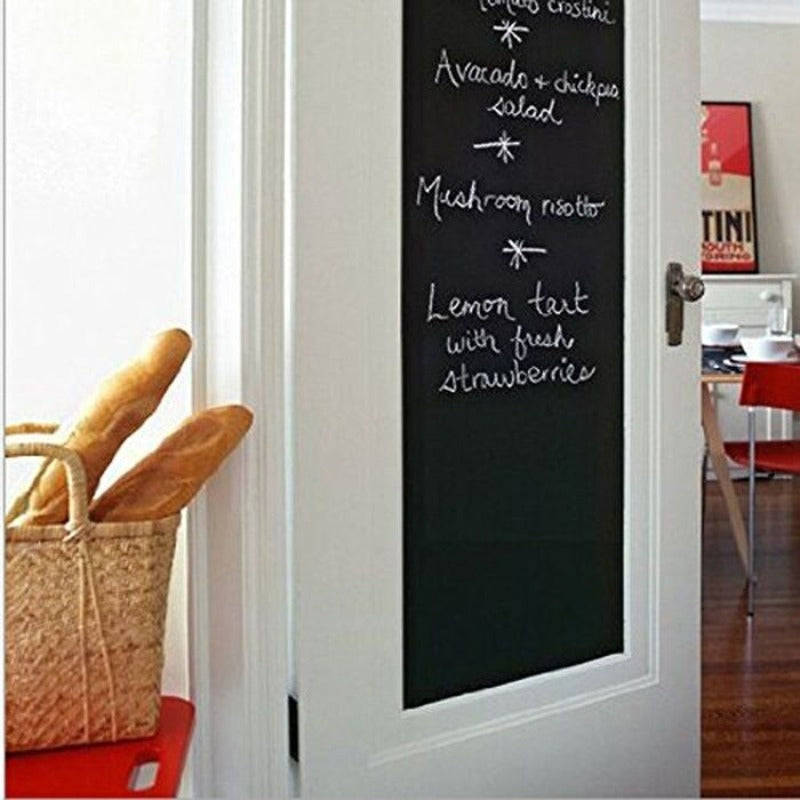 Tomato crostini
Avacado + chickpea
salad
Mushroom risotto
Lemon tart
with fresh
strawberries
TINI
TORINO